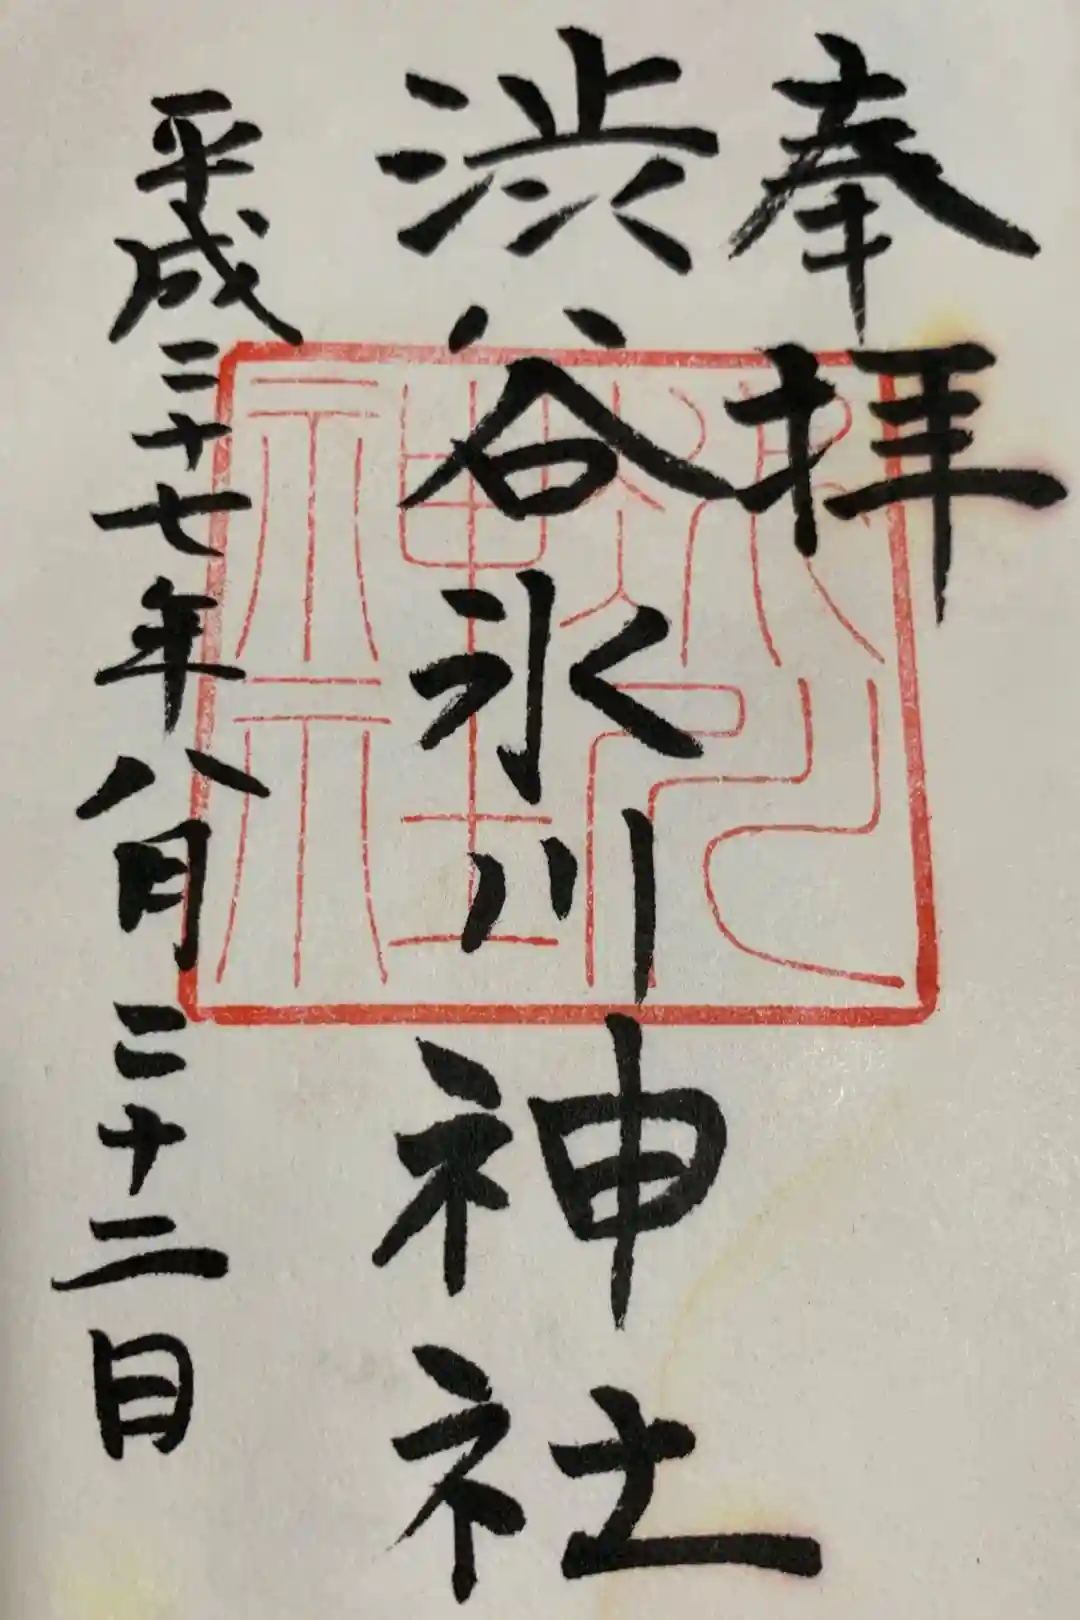 奉拝
渋谷氷川神社
平成二十七年八月二十二日
氷川神社